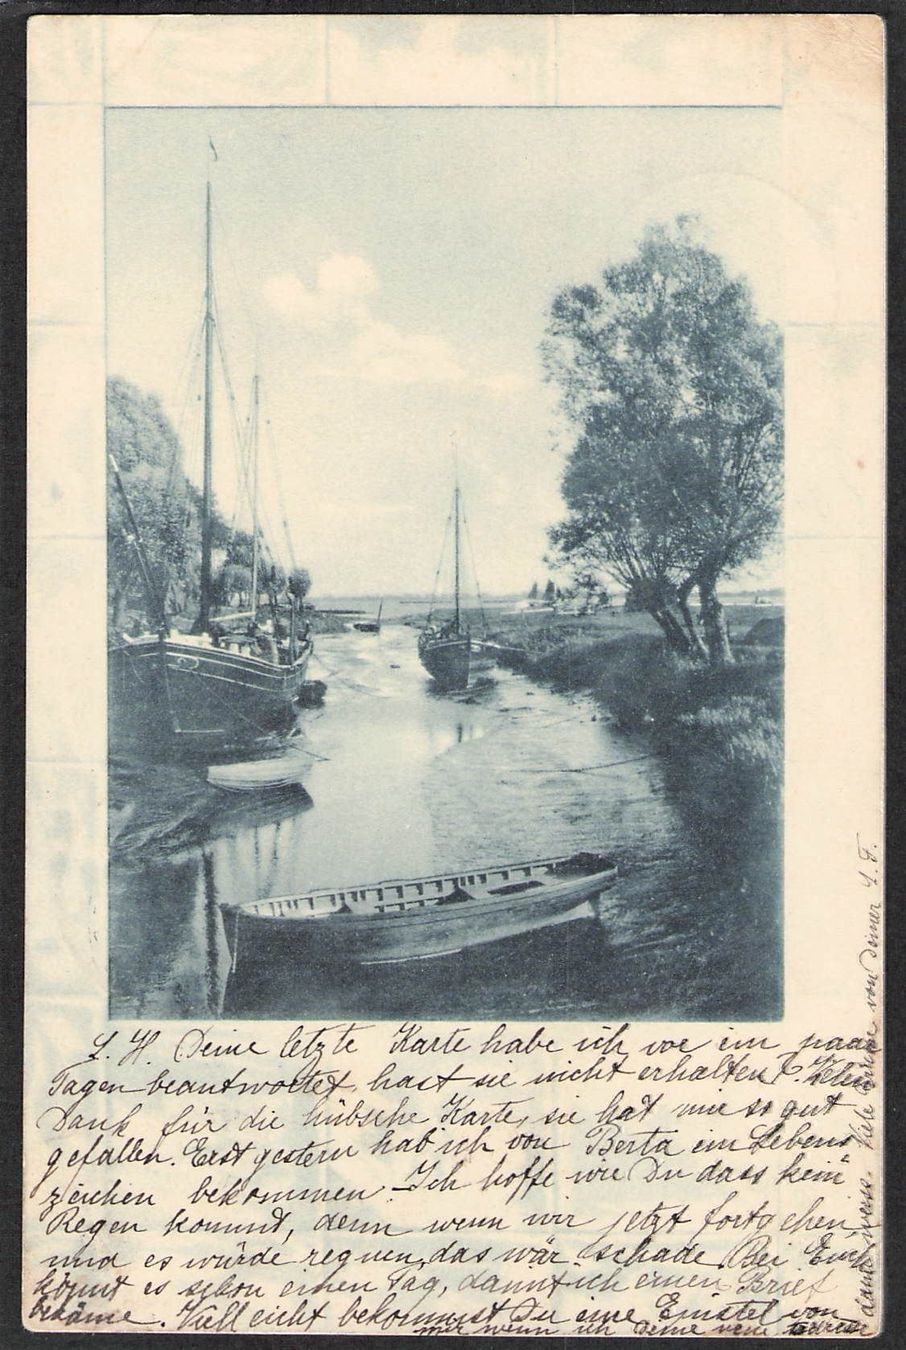 L. H. Deine letzte Karte habe ich vor ein paar
Tagen beantwortet, hast sie nicht erhalten? Vielen
Dank für die hübsche Karte, sie hat mir so gut
gefallen. Erst gestern hab ich von Berta ein Lebens
zeichen bekommen. Ich hoffe wie Du dass kein
Regen kommt, denn wenn wir jetzt fortgehen
und es würde regnen, das wär schade. Bei Euch
könnt es schon einen Tag, damit ich einen Brief
bekäme. Vielleicht bekommst Du eine Epistel von
mir wenn ich deine neue Adresse
dann weiss. Viele Grüsse von Deiner L. F.